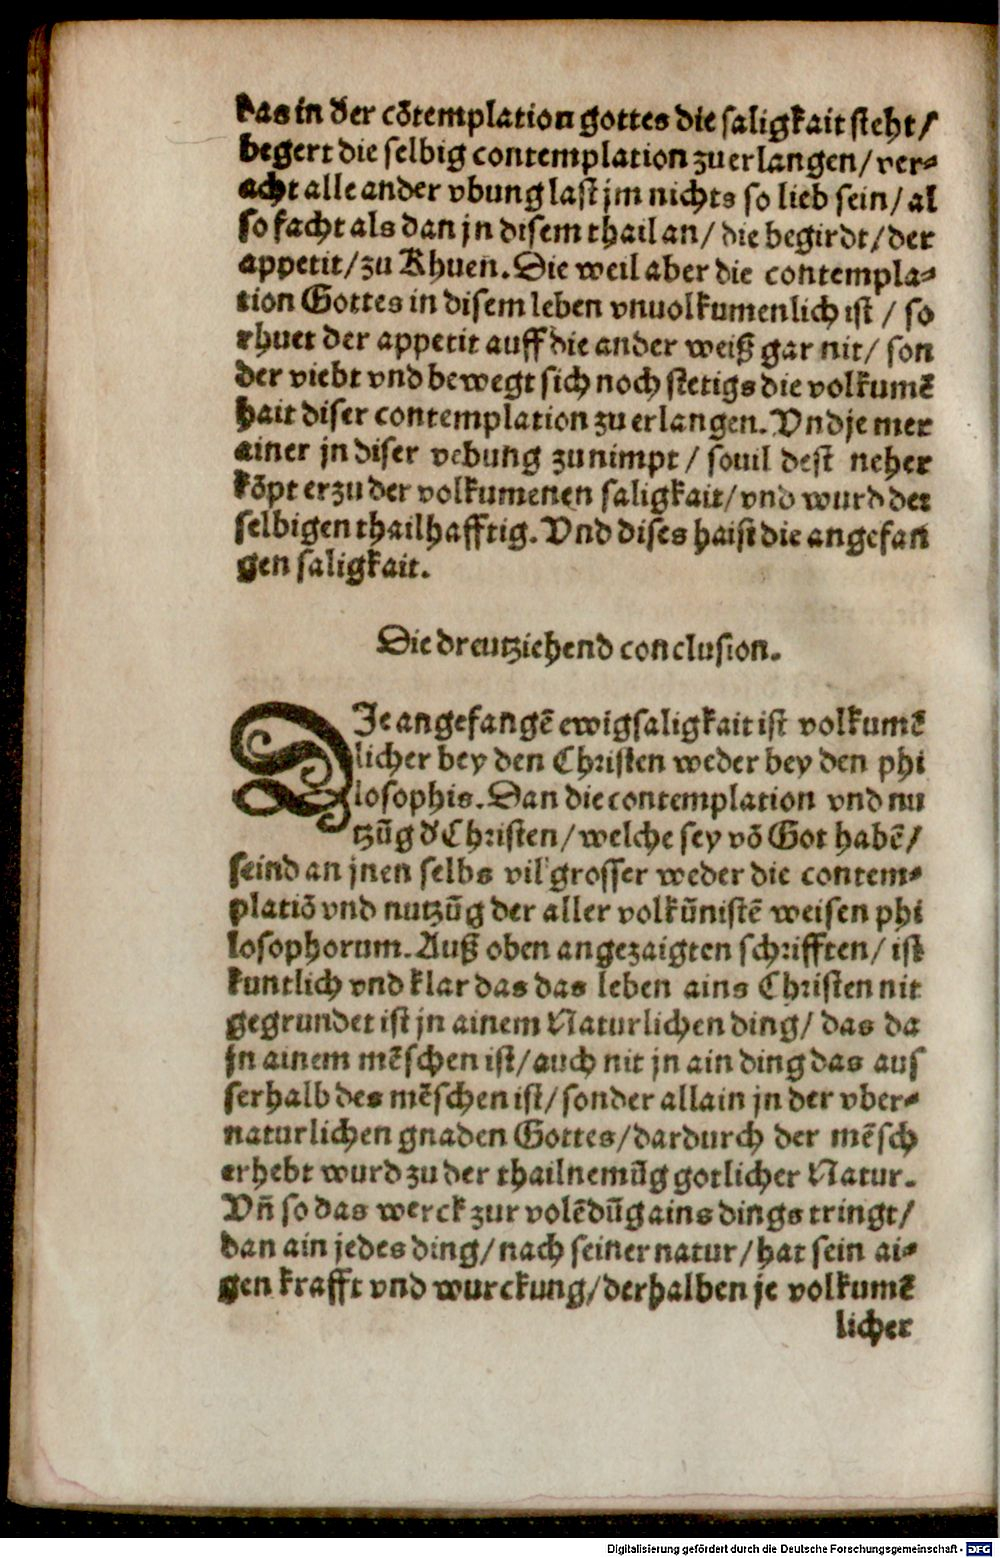 das in der cõtemplation gottes die saligkait steht/
begert die selbig contemplation zu erlangen/ ver⸗
acht alle ander vbung last jm nichts so lieb sein/ al
so facht als dan jn disem thail an/ die begirdt/ der
appetit/ zu Rhuen. Die weil aber die contempla⸗
tion Gottes in disem leben vnuolkumenlich ist / so
rhuet der appetit auff die ander weiß gar nit/ son
der viebt vnd bewegt sich noch stetigs die volkumẽ
hait diser contemplation zu erlangen. Vnd je mer
ainer jn diser vebung zunimpt / souil dest neher
kõpt er zu der volkumenen saligkait/ vnd wurd der
selbigen thailhafftig. Vnd dises haist die angefan
gen saligkait.
Die dreutziehend conclusion.
DJe angefangẽ ewig saligkait ist volkumẽ
licher bey den Christen weder bey den phi
losophis. Dan die contemplation vnd nu
tzũg d' Christen/ welche sey võ Got habẽ/
seind an jnen selbs vil grosser weder die contem⸗
platiõ vnd nutzũg der aller volkũnistẽ weisen phi
losophorum. Auß oben angezaigten schrifften/ ist
kuntlich vnd klar das das leben ains Christen nit
gegrundet ist jn ainem Naturlichen ding/ das da
jn ainem mẽschen ist/ auch nit jn ain ding das aus
serhalb des mẽschen ist/ sonder allain jn der vber⸗
naturlichen gnaden Gottes/ dardurch der mẽsch
erhebt wurd zu der thailnemũg gotlicher Natur.
Vñ so das werck zur volẽdũg ains dings tringt/
dan ain jedes ding/ nach seiner natur/ hat sein ai⸗
gen krafft vnd wurckung/ derhalben je volkumẽ
licher
Digitalisierung gefördert durch die Deutsche Forschungsgemeinschaft - DFG